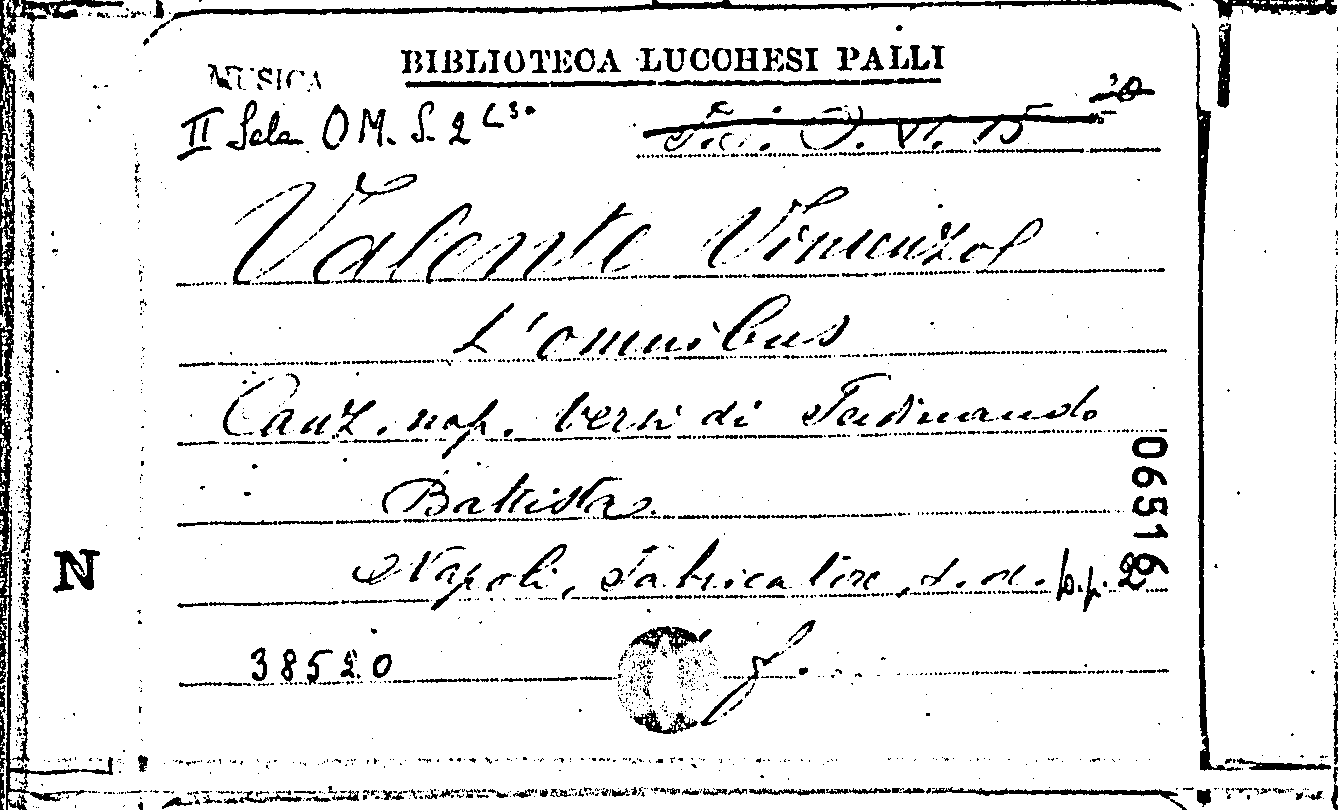 MUSICA
BIBLIOTECA LUCCHESI PALLI
II Sala OM. S. 2
VI. 15
Valente Vincenzo
L'omnibus
Canz. nap. versi di Ferdinando
Battista
Napoli, Fabricatore, s. d. p.p. 2
38520
065162
N